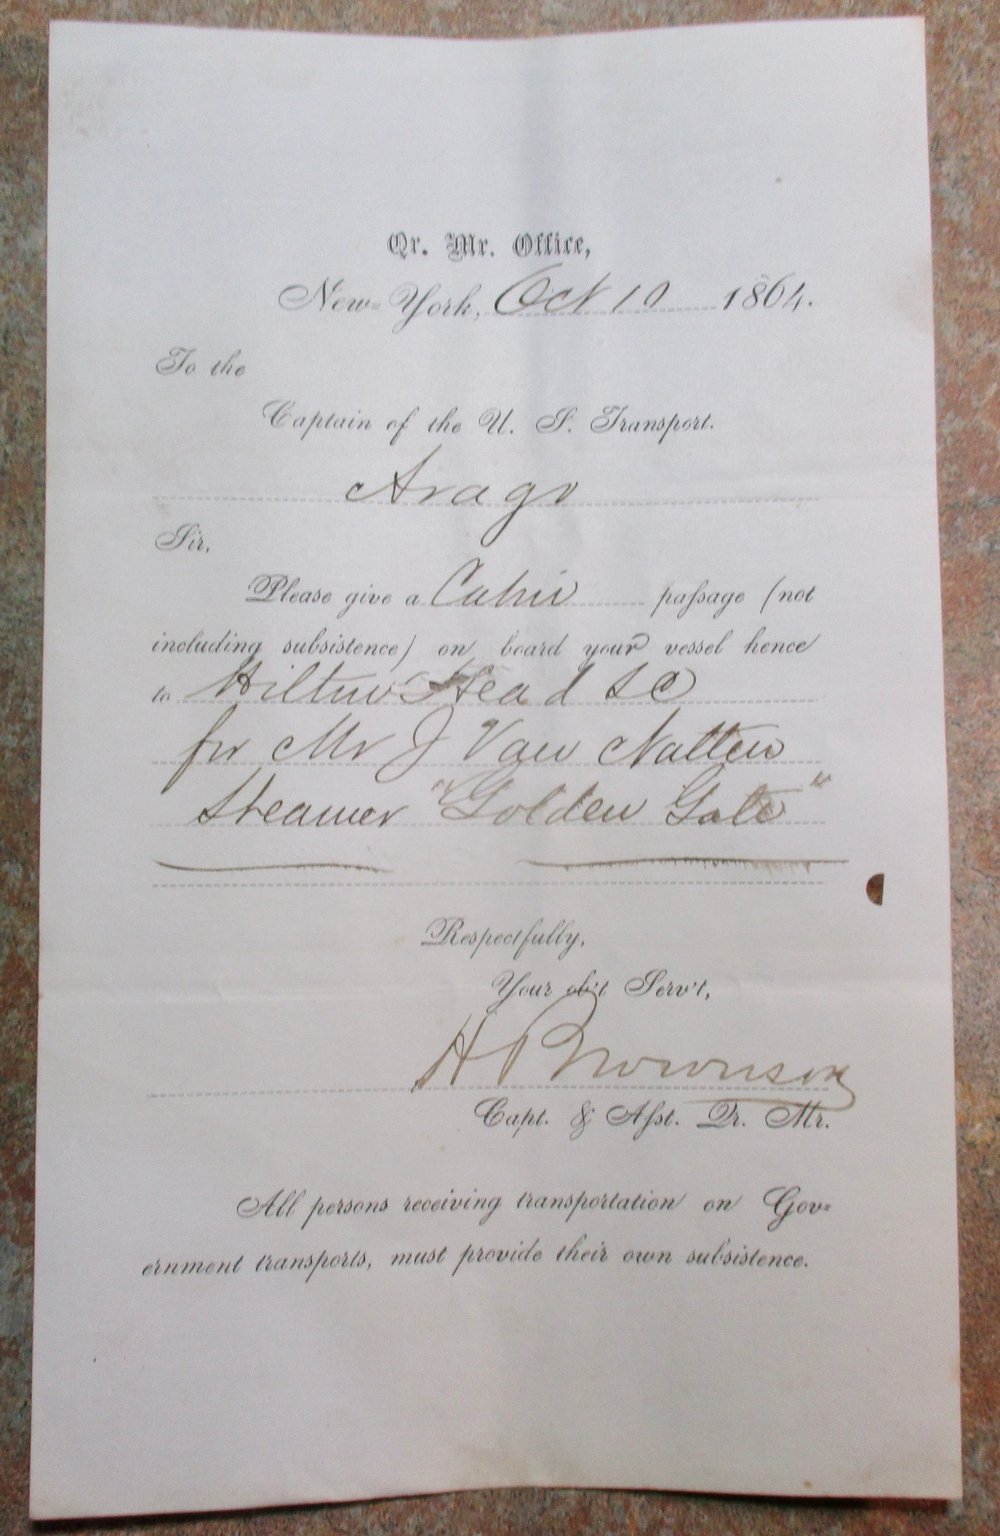 Qr. Mr. Office,
New-York, Oct 10 1864.
To the
Captain of the U. S. Transport.
Arago
Sir,
Please give a Cabin passage (not
including subsistence) on board your vessel hence
to Hilton Head S C
for Mr J Van Natten
Steamer "Golden Gate"
Respectfully,
Your ob't Serv't,
H Brownson
Capt. & Asst. Qr. Mr.
All persons receiving transportation on Gov-
ernment transports, must provide their own subsistence.